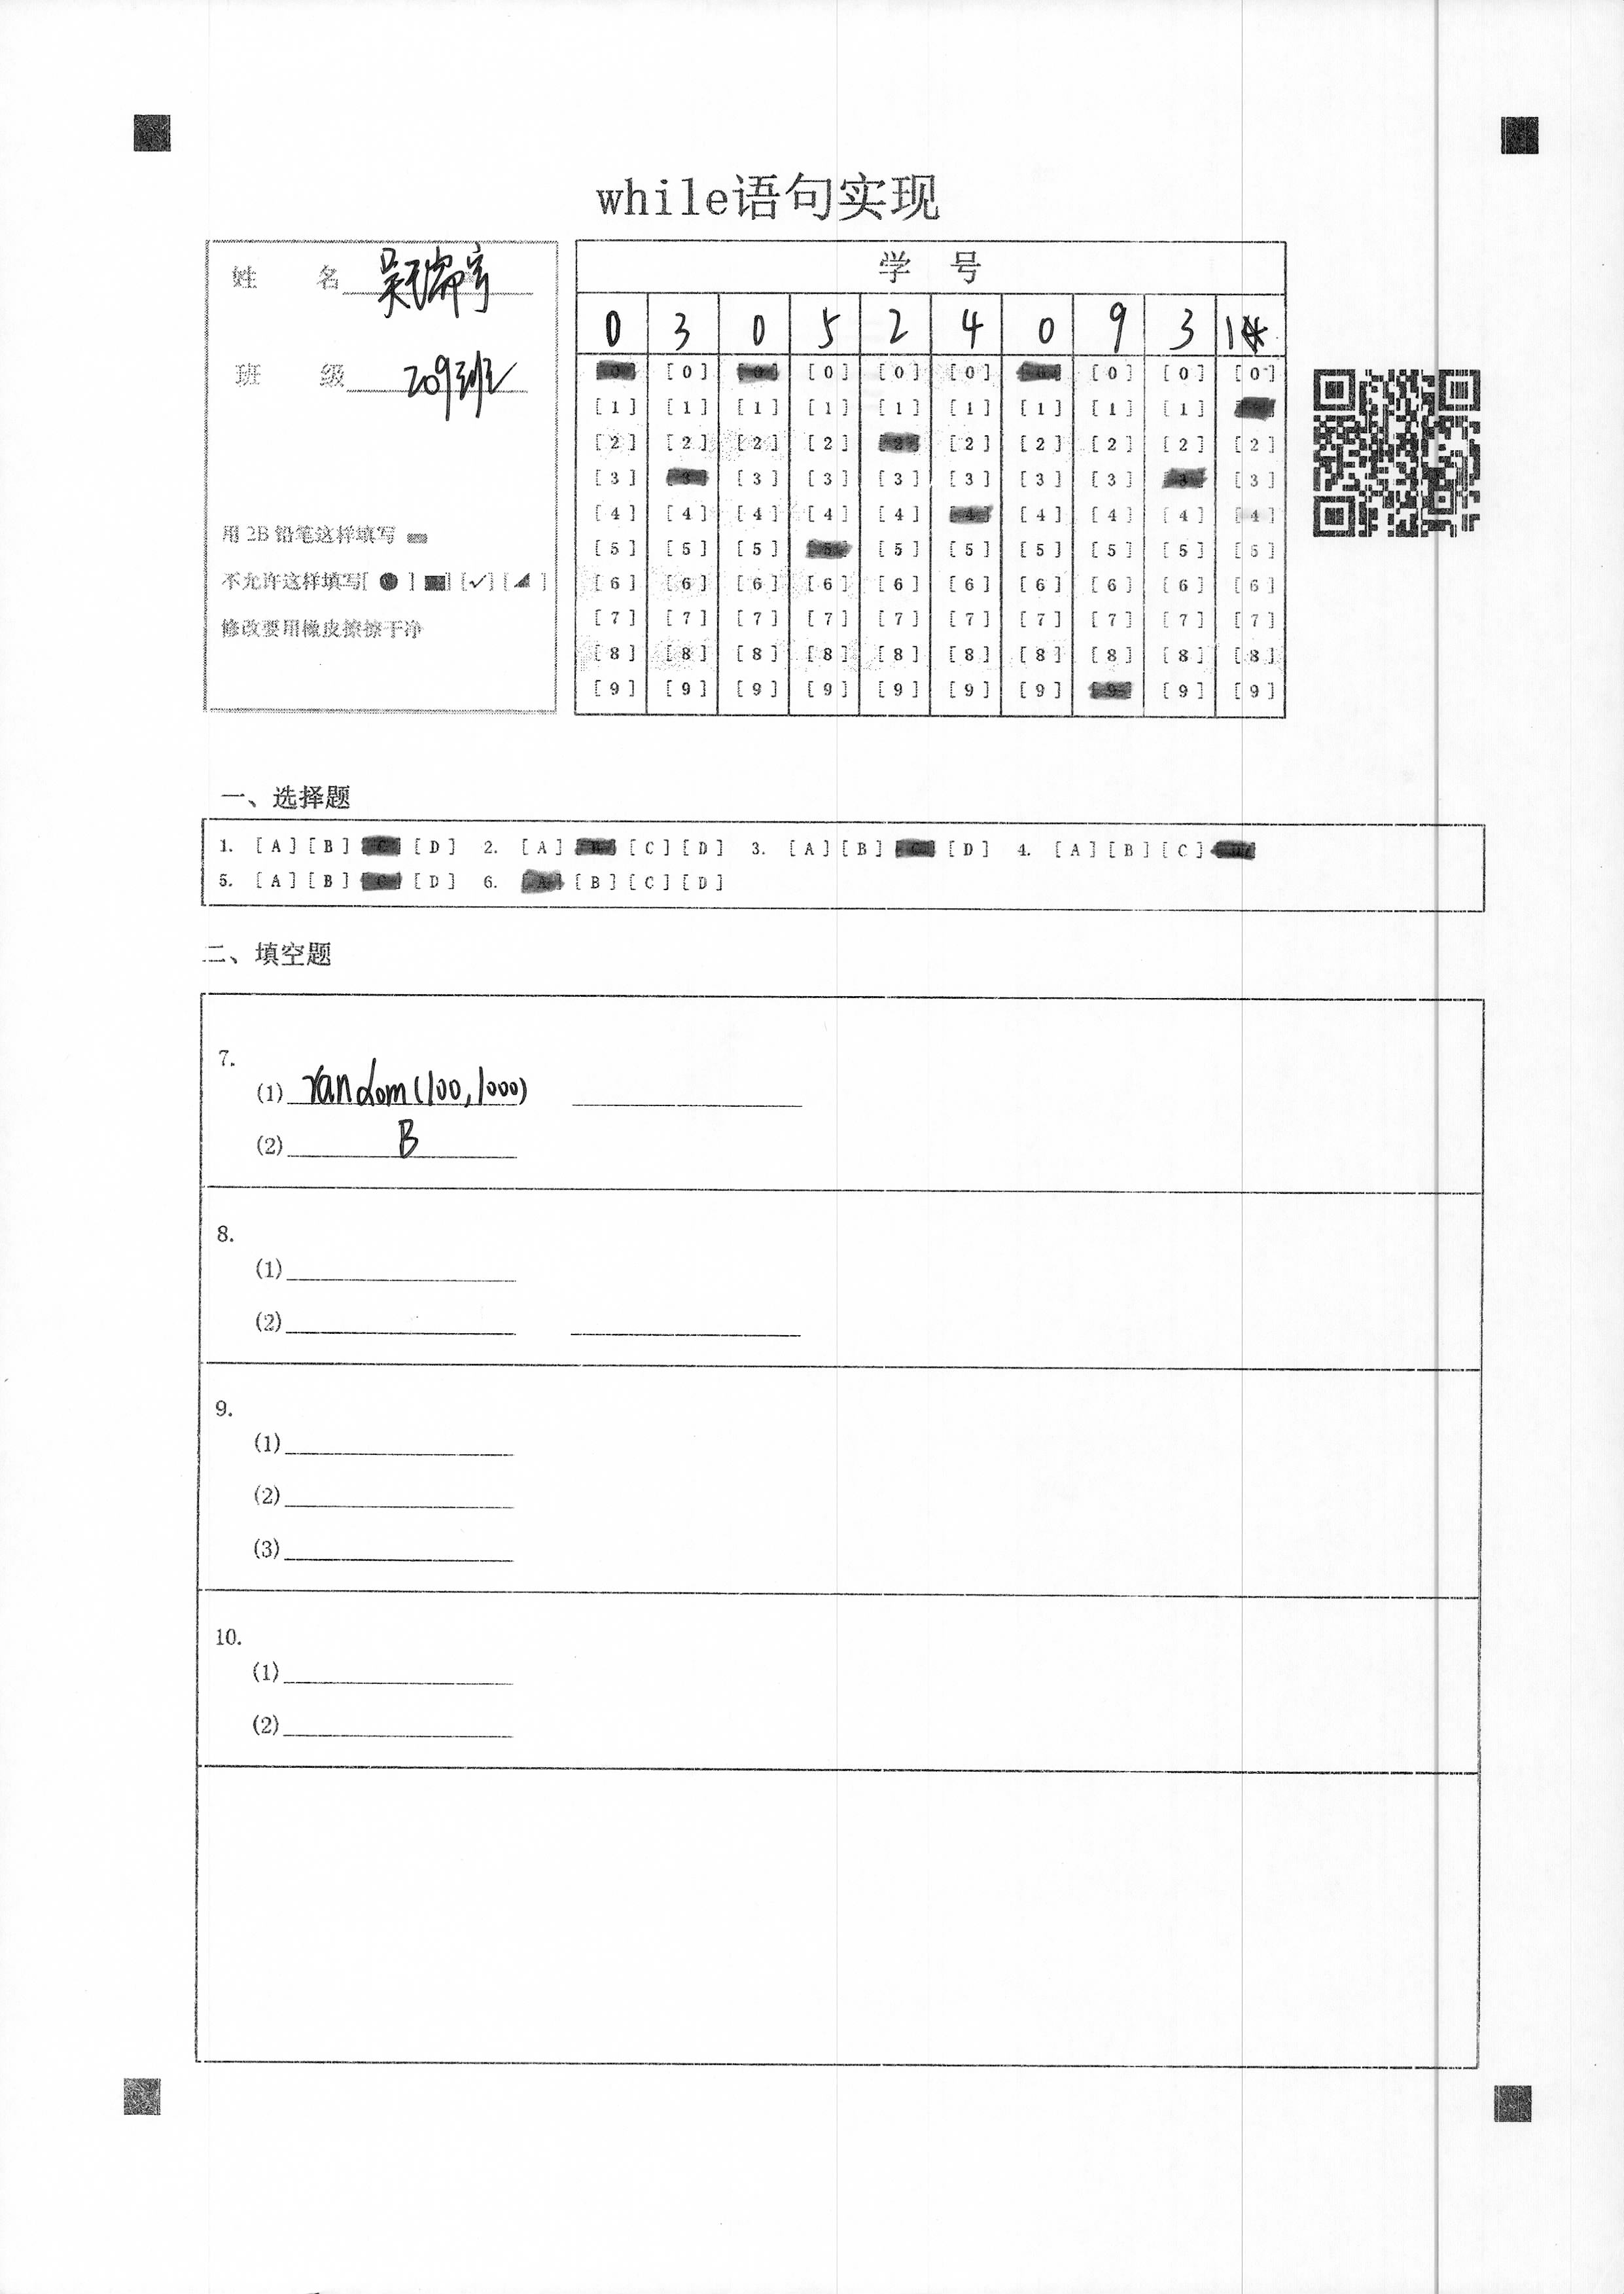 while语句实现
姓 名 吴瑞宇
班 级 209班
用 2B 铅笔这样填写
不允许这样填写[ ● ] [■] [✓] [◢ ]
修改要用橡皮擦擦干净
学 号
0 3 0 5 2 4 0 9 3 1
[0] [0] [0] [0] [0] [0] [0] [0] [0] [0]
[1] [1] [1] [1] [1] [1] [1] [1] [1] [1]
[2] [2] [2] [2] [2] [2] [2] [2] [2] [2]
[3] [3] [3] [3] [3] [3] [3] [3] [3] [3]
[4] [4] [4] [4] [4] [4] [4] [4] [4] [4]
[5] [5] [5] [5] [5] [5] [5] [5] [5] [5]
[6] [6] [6] [6] [6] [6] [6] [6] [6] [6]
[7] [7] [7] [7] [7] [7] [7] [7] [7] [7]
[8] [8] [8] [8] [8] [8] [8] [8] [8] [8]
[9] [9] [9] [9] [9] [9] [9] [9] [9] [9]
一、选择题
1. [A] [B] [C] [D] 2. [A] [B] [C] [D] 3. [A] [B] [C] [D] 4. [A] [B] [C] [D]
5. [A] [B] [C] [D] 6. [A] [B] [C] [D]
二、填空题
7.
(1) random(100,1000)
(2) B
8.
(1)
(2)
9.
(1)
(2)
(3)
10.
(1)
(2)